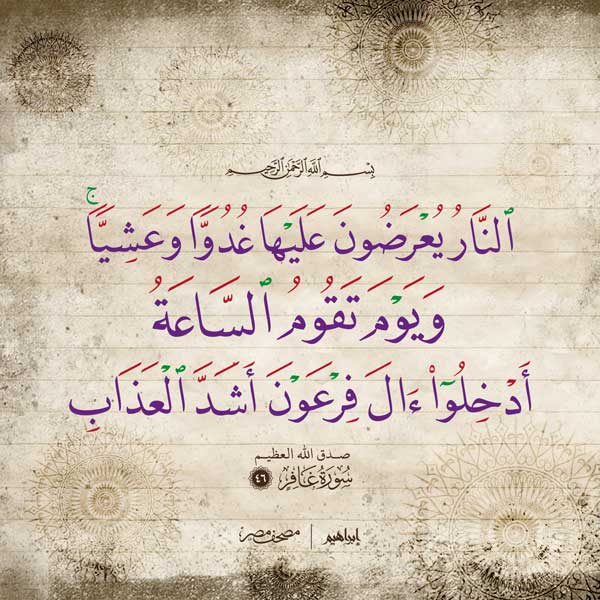 بِسْمِ ٱللَّهِ ٱلرَّحْمَٰنِ ٱلرَّحِيمِ
ٱلنَّارُ يُعْرَضُونَ عَلَيْهَا غُدُوًّا وَعَشِيًّاۚ
وَيَوْمَ تَقُومُ ٱلسَّاعَةُ
أَدْخِلُوٓا۟ ءَالَ فِرْعَوْنَ أَشَدَّ ٱلْعَذَابِ
صدق الله العظيم
سُورَةُ غَافِرٍ ٤٦
إبراهيم | مصحف مصر